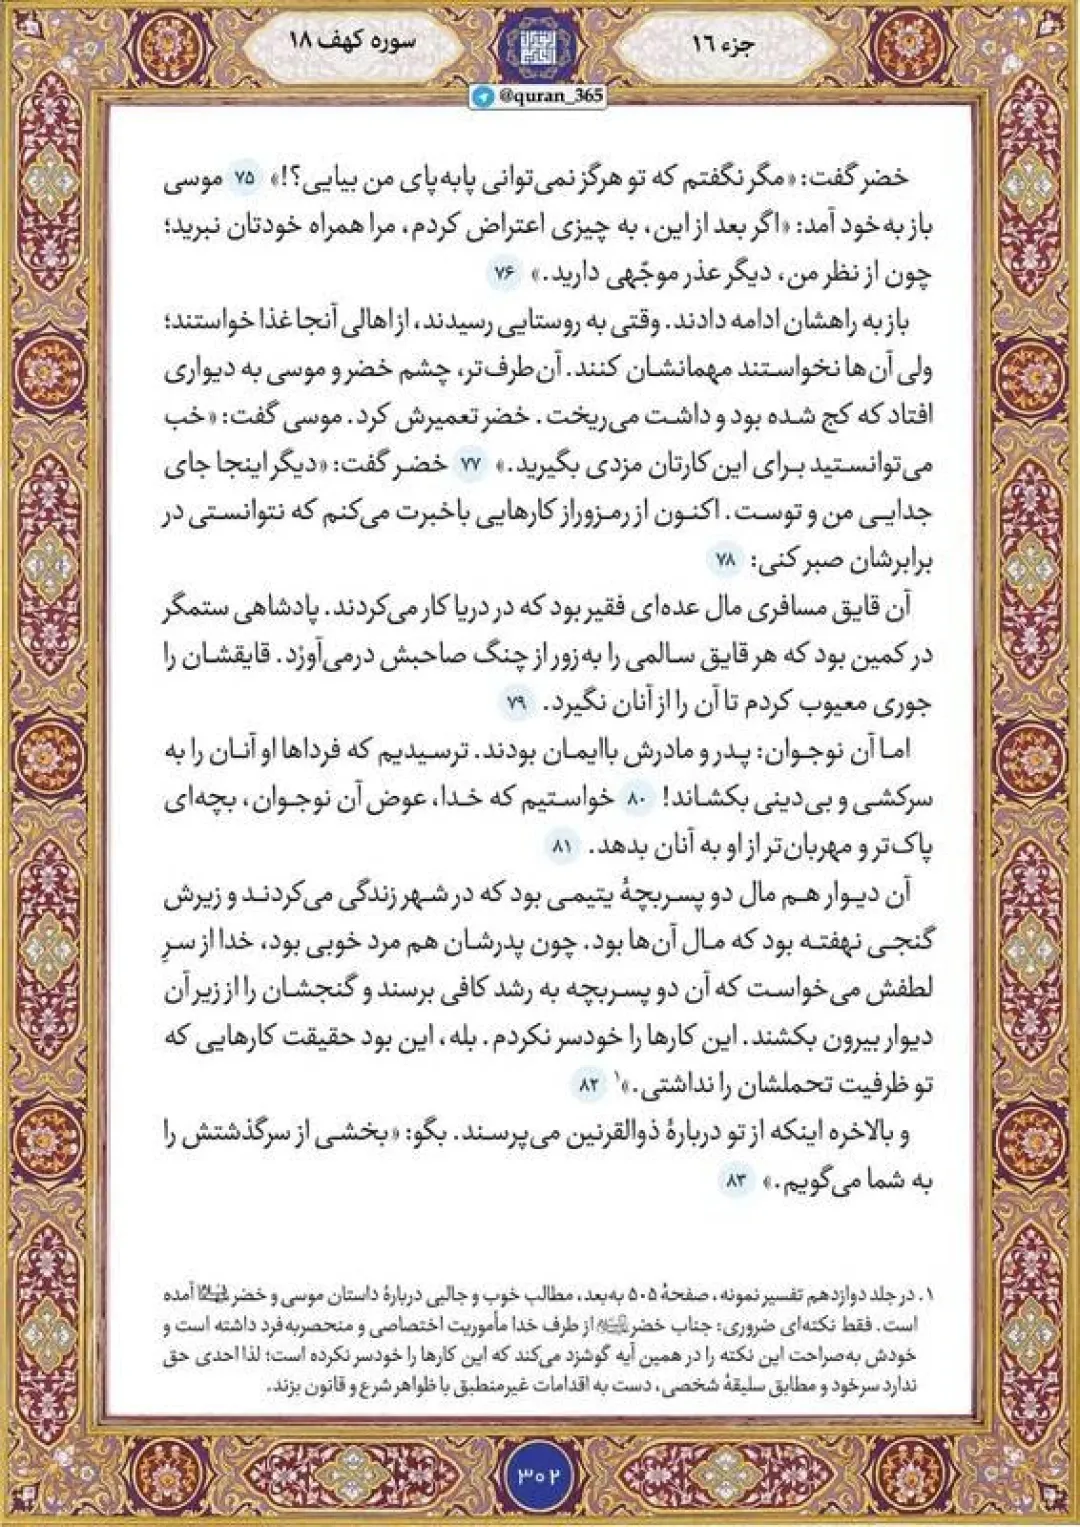 جزء ۱۶
سوره کهف ۱۸
@quran_365
خضر گفت: «مگر نگفتم که تو هرگز نمی‌توانی پابه‌پای من بیایی؟!» ۷۵ موسی
باز به خود آمد: «اگر بعد از این، به چیزی اعتراض کردم، مرا همراه خودتان نبرید؛
چون از نظر من، دیگر عذر موجّهی دارید.» ۷۶
باز به راهشان ادامه دادند. وقتی به روستایی رسیدند، از اهالی آنجا غذا خواستند؛
ولی آن‌ها نخواستند مهمانشان کنند. آن‌طرف‌تر، چشم خضر و موسی به دیواری
افتاد که کج شده بود و داشت می‌ریخت. خضر تعمیرش کرد. موسی گفت: «خب
می‌توانستید برای این کارتان مزدی بگیرید.» ۷۷ خضر گفت: «دیگر اینجا جای
جدایی من و توست. اکنون از رمزوراز کارهایی باخبرت می‌کنم که نتوانستی در
برابرشان صبر کنی: ۷۸
آن قایق مسافری مال عده‌ای فقیر بود که در دریا کار می‌کردند. پادشاهی ستمگر
در کمین بود که هر قایق سالمی را به‌زور از چنگ صاحبش درمی‌آوَرْد. قایقشان را
جوری معیوب کردم تا آن را از آنان نگیرد. ۷۹
اما آن نوجوان: پدر و مادرش باایمان بودند. ترسیدیم که فرداها او آنان را به
سرکشی و بی‌دینی بکشاند! ۸۰ خواستیم که خدا، عوض آن نوجوان، بچه‌ای
پاک‌تر و مهربان‌تر از او به آنان بدهد. ۸۱
آن دیوار هم مال دو پسربچهٔ یتیمی بود که در شهر زندگی می‌کردند و زیرش
گنجی نهفته بود که مال آن‌ها بود. چون پدرشان هم مرد خوبی بود، خدا از سرِ
لطفش می‌خواست که آن دو پسربچه به رشد کافی برسند و گنجشان را از زیر آن
دیوار بیرون بکشند. این کارها را خودسر نکردم. بله، این بود حقیقت کارهایی که
تو ظرفیت تحملشان را نداشتی.»۱ ۸۲
و بالاخره اینکه از تو دربارهٔ ذوالقرنین می‌پرسند. بگو: «بخشی از سرگذشتش را
به شما می‌گویم.» ۸۳
۱. در جلد دوازدهم تفسیر نمونه، صفحهٔ ۵۰۵ به‌بعد، مطالب خوب و جالبی دربارهٔ داستان موسی و خضر آمده
است. فقط نکته‌ای ضروری: جناب خضر از طرف خدا مأموریت اختصاصی و منحصربه‌فرد داشته است و
خودش به‌صراحت این نکته را در همین آیه گوشزد می‌کند که این کارها را خودسر نکرده است؛ لذا احدی حق
ندارد سرخود و مطابق سلیقهٔ شخصی، دست به اقدامات غیرمنطبق با ظواهر شرع و قانون بزند.
۳۰۲